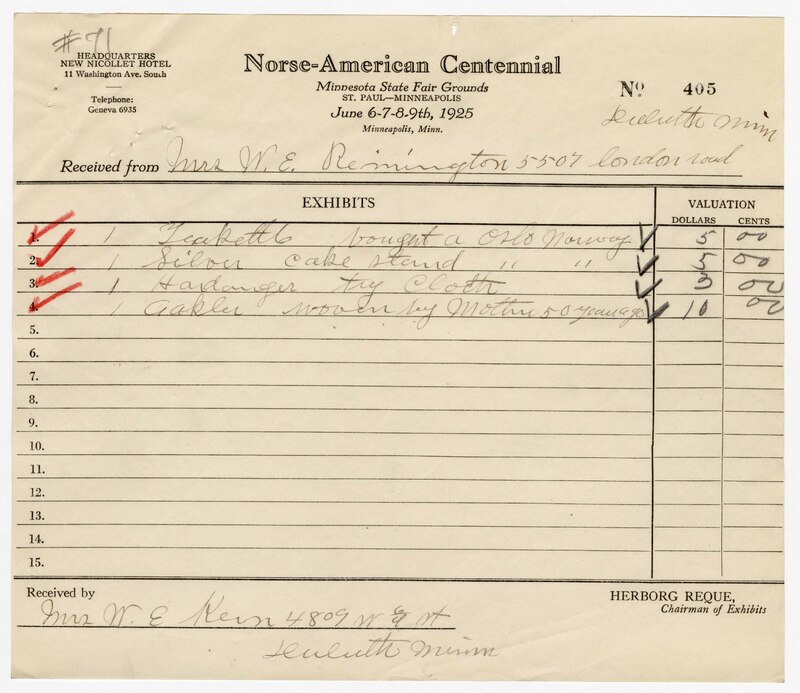 #71
HEADQUARTERS
NEW NICOLLET HOTEL
11 Washington Ave. South
Telephone:
Geneva 6935
Norse-American Centennial
Minnesota State Fair Grounds
ST. PAUL—MINNEAPOLIS
June 6-7-8-9th, 1925
Minneapolis, Minn.
No 405
Duluth Minn
Received from Mrs W. E. Remington 5507 London road
EXHIBITS
VALUATION
DOLLARS CENTS
1. 1 Teakettle bought a Oslo Norway 5 00
2. 1 Silver cake stand " " 5 00
3. 1 Hardanger try Cloth 3 00
4. 1 woven by Mother 50 years ago 10 00
5.
6.
7.
8.
9.
10.
11.
12.
13.
14.
15.
Received by
Mrs W. E Kern 4809 W St
Duluth Minn
HERBORG REQUE,
Chairman of Exhibits